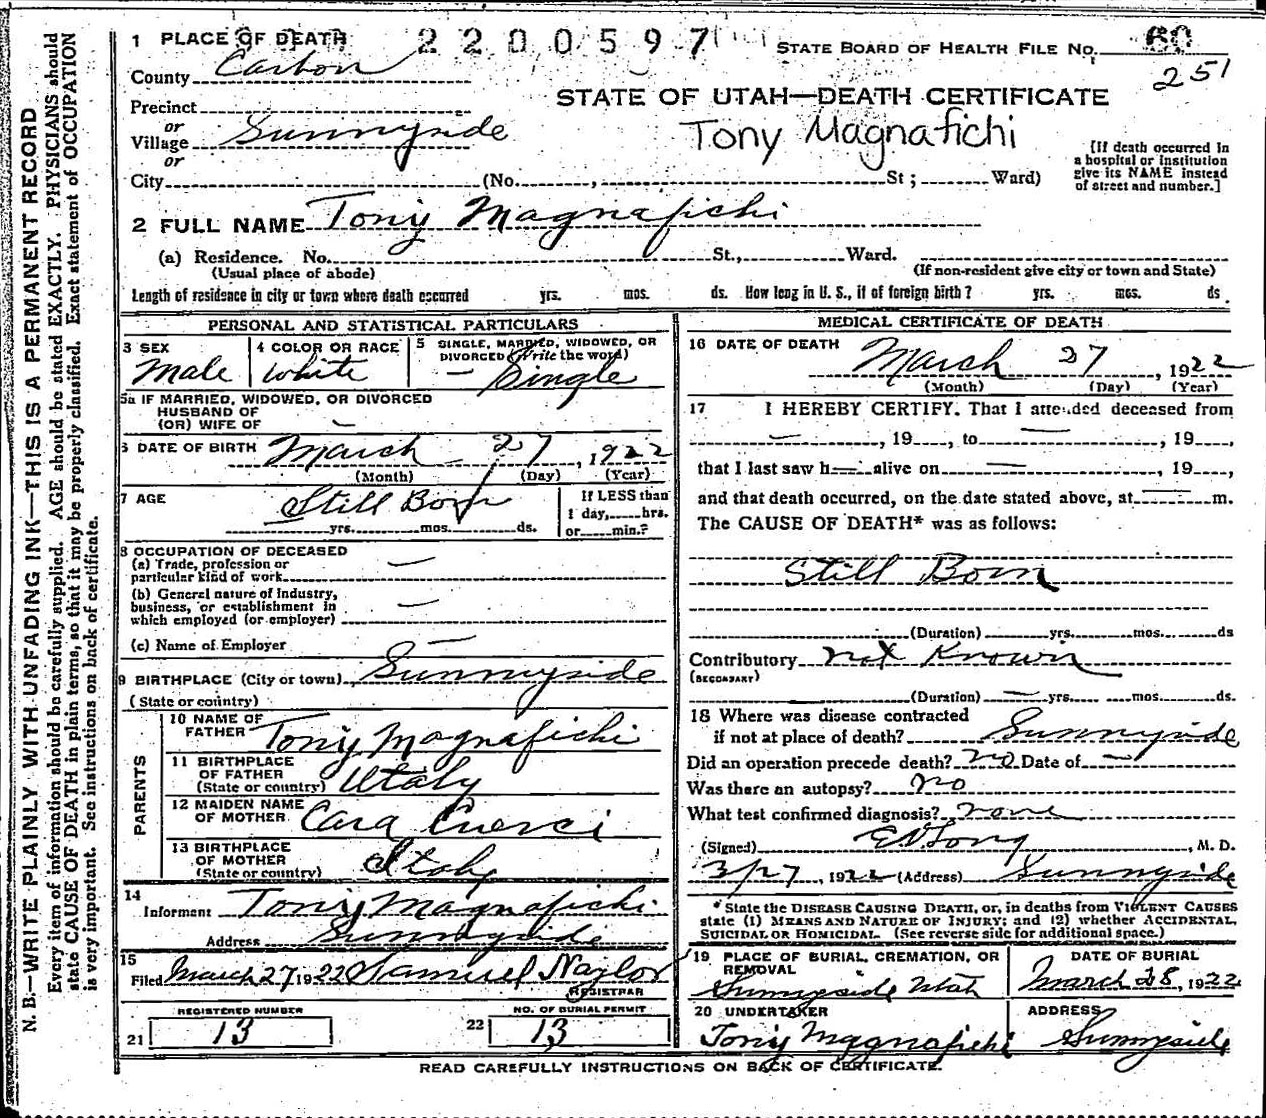 N. B.—WRITE PLAINLY WITH UNFADING INK—THIS IS A PERMANENT RECORD
Every item of information should be carefully supplied. AGE should be stated EXACTLY. PHYSICIANS should
state CAUSE OF DEATH in plain terms, so that it may be properly classified. Exact statement of OCCUPATION
is very important. See instructions on back of certificate.
1 PLACE OF DEATH 2200597 STATE BOARD OF HEALTH FILE NO. 60
County Carbon 251
STATE OF UTAH—DEATH CERTIFICATE
Precinct
or
Village Sunnyside Tony Magnafichi
or
City (No. , St ; Ward)
[If death occurred in
a hospital or institution
give its NAME instead
of street and number.]
2 FULL NAME Tony Magnafichi
(a) Residence. No. St., Ward.
(Usual place of abode) (If non-resident give city or town and State)
Length of residence in city or town where death occurred yrs. mos. ds. How long in U. S., if of foreign birth? yrs. mos. ds.
PERSONAL AND STATISTICAL PARTICULARS
3 SEX
Male
4 COLOR OR RACE
White
5 SINGLE, MARRIED, WIDOWED, OR
DIVORCED (Write the word)
— Single
5a IF MARRIED, WIDOWED, OR DIVORCED
HUSBAND OF
(OR) WIFE OF —
6 DATE OF BIRTH March 27, 1922
(Month) (Day) (Year)
7 AGE Still Born
yrs. mos. ds.
If LESS than
1 day, hrs.
or min.?
8 OCCUPATION OF DECEASED
(a) Trade, profession or
particular kind of work —
(b) General nature of Industry,
business, or establishment in
which employed (or employer) —
(c) Name of Employer —
9 BIRTHPLACE (City or town) Sunnyside
(State or country)
PARENTS
10 NAME OF
FATHER Tony Magnafichi
11 BIRTHPLACE
OF FATHER
(State or country) Utaly
12 MAIDEN NAME
OF MOTHER Cara Cuerci
13 BIRTHPLACE
OF MOTHER
(State or country) Italy
14
Informant Tony Magnafichi
Address Sunnyside
15
Filed March 27 1922 Samuel Naylor
REGISTRAR
REGISTERED NUMBER
21 13
NO. OF BURIAL PERMIT
22 13
MEDICAL CERTIFICATE OF DEATH
16 DATE OF DEATH March 27, 1922
(Month) (Day) (Year)
17 I HEREBY CERTIFY. That I attended deceased from
—, 19 , to —, 19 ,
that I last saw h— alive on —, 19 ,
and that death occurred, on the date stated above, at — m.
The CAUSE OF DEATH* was as follows:
Still Born
(Duration) yrs. mos. ds
Contributory not Known
(SECONDARY)
(Duration) — yrs. mos. ds.
18 Where was disease contracted
if not at place of death? Sunnyside
Did an operation precede death? no Date of —
Was there an autopsy? no
What test confirmed diagnosis? none
(Signed) , M. D.
3/27, 1922 (Address) Sunnyside
*State the DISEASE CAUSING DEATH, or, in deaths from VIOLENT CAUSES
state (1) MEANS AND NATURE OF INJURY; and (2) whether ACCIDENTAL,
SUICIDAL OR HOMICIDAL. (See reverse side for additional space.)
19 PLACE OF BURIAL, CREMATION, OR
REMOVAL
Sunnyside Utah
DATE OF BURIAL
March 28, 1922
20 UNDERTAKER
Tony Magnafichi
ADDRESS
Sunnyside
READ CAREFULLY INSTRUCTIONS ON BACK OF CERTIFICATE.